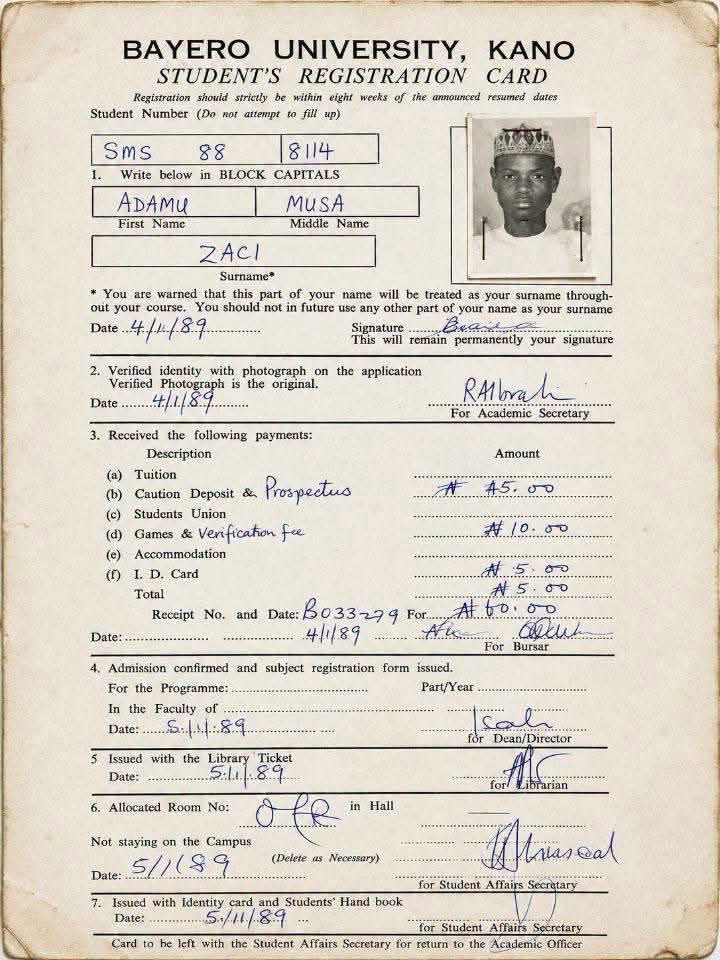 BAYERO UNIVERSITY, KANO
STUDENT'S REGISTRATION CARD
Registration should strictly be within eight weeks of the announced resumed dates
Student Number (Do not attempt to fill up)
SMS 88 8114
1. Write below in BLOCK CAPITALS
ADAMU MUSA
First Name Middle Name
ZACI
Surname*
* You are warned that this part of your name will be treated as your surname through-
out your course. You should not in future use any other part of your name as your surname
Date 4/11/89 Signature
This will remain permanently your signature
2. Verified identity with photograph on the application
Verified Photograph is the original.
Date 4/1/89
For Academic Secretary
3. Received the following payments:
Description Amount
(a) Tuition
(b) Caution Deposit & Prospectus ₦ 45.00
(c) Students Union
(d) Games & Verification fee ₦ 10.00
(e) Accommodation
(f) I. D. Card ₦ 5.00
Total ₦ 5.00
Receipt No. and Date: B033279 For ₦ 60.00
Date: 4/1/89
For Bursar
4. Admission confirmed and subject registration form issued.
For the Programme: Part/Year
In the Faculty of
Date: 5/1/89
for Dean/Director
5 Issued with the Library Ticket
Date: 5/1/89
for Librarian
6. Allocated Room No: in Hall
Not staying on the Campus
(Delete as Necessary)
Date: 5/1/89
for Student Affairs Secretary
7. Issued with Identity card and Students' Hand book
Date: 5/11/89
for Student Affairs Secretary
Card to be left with the Student Affairs Secretary for return to the Academic Officer